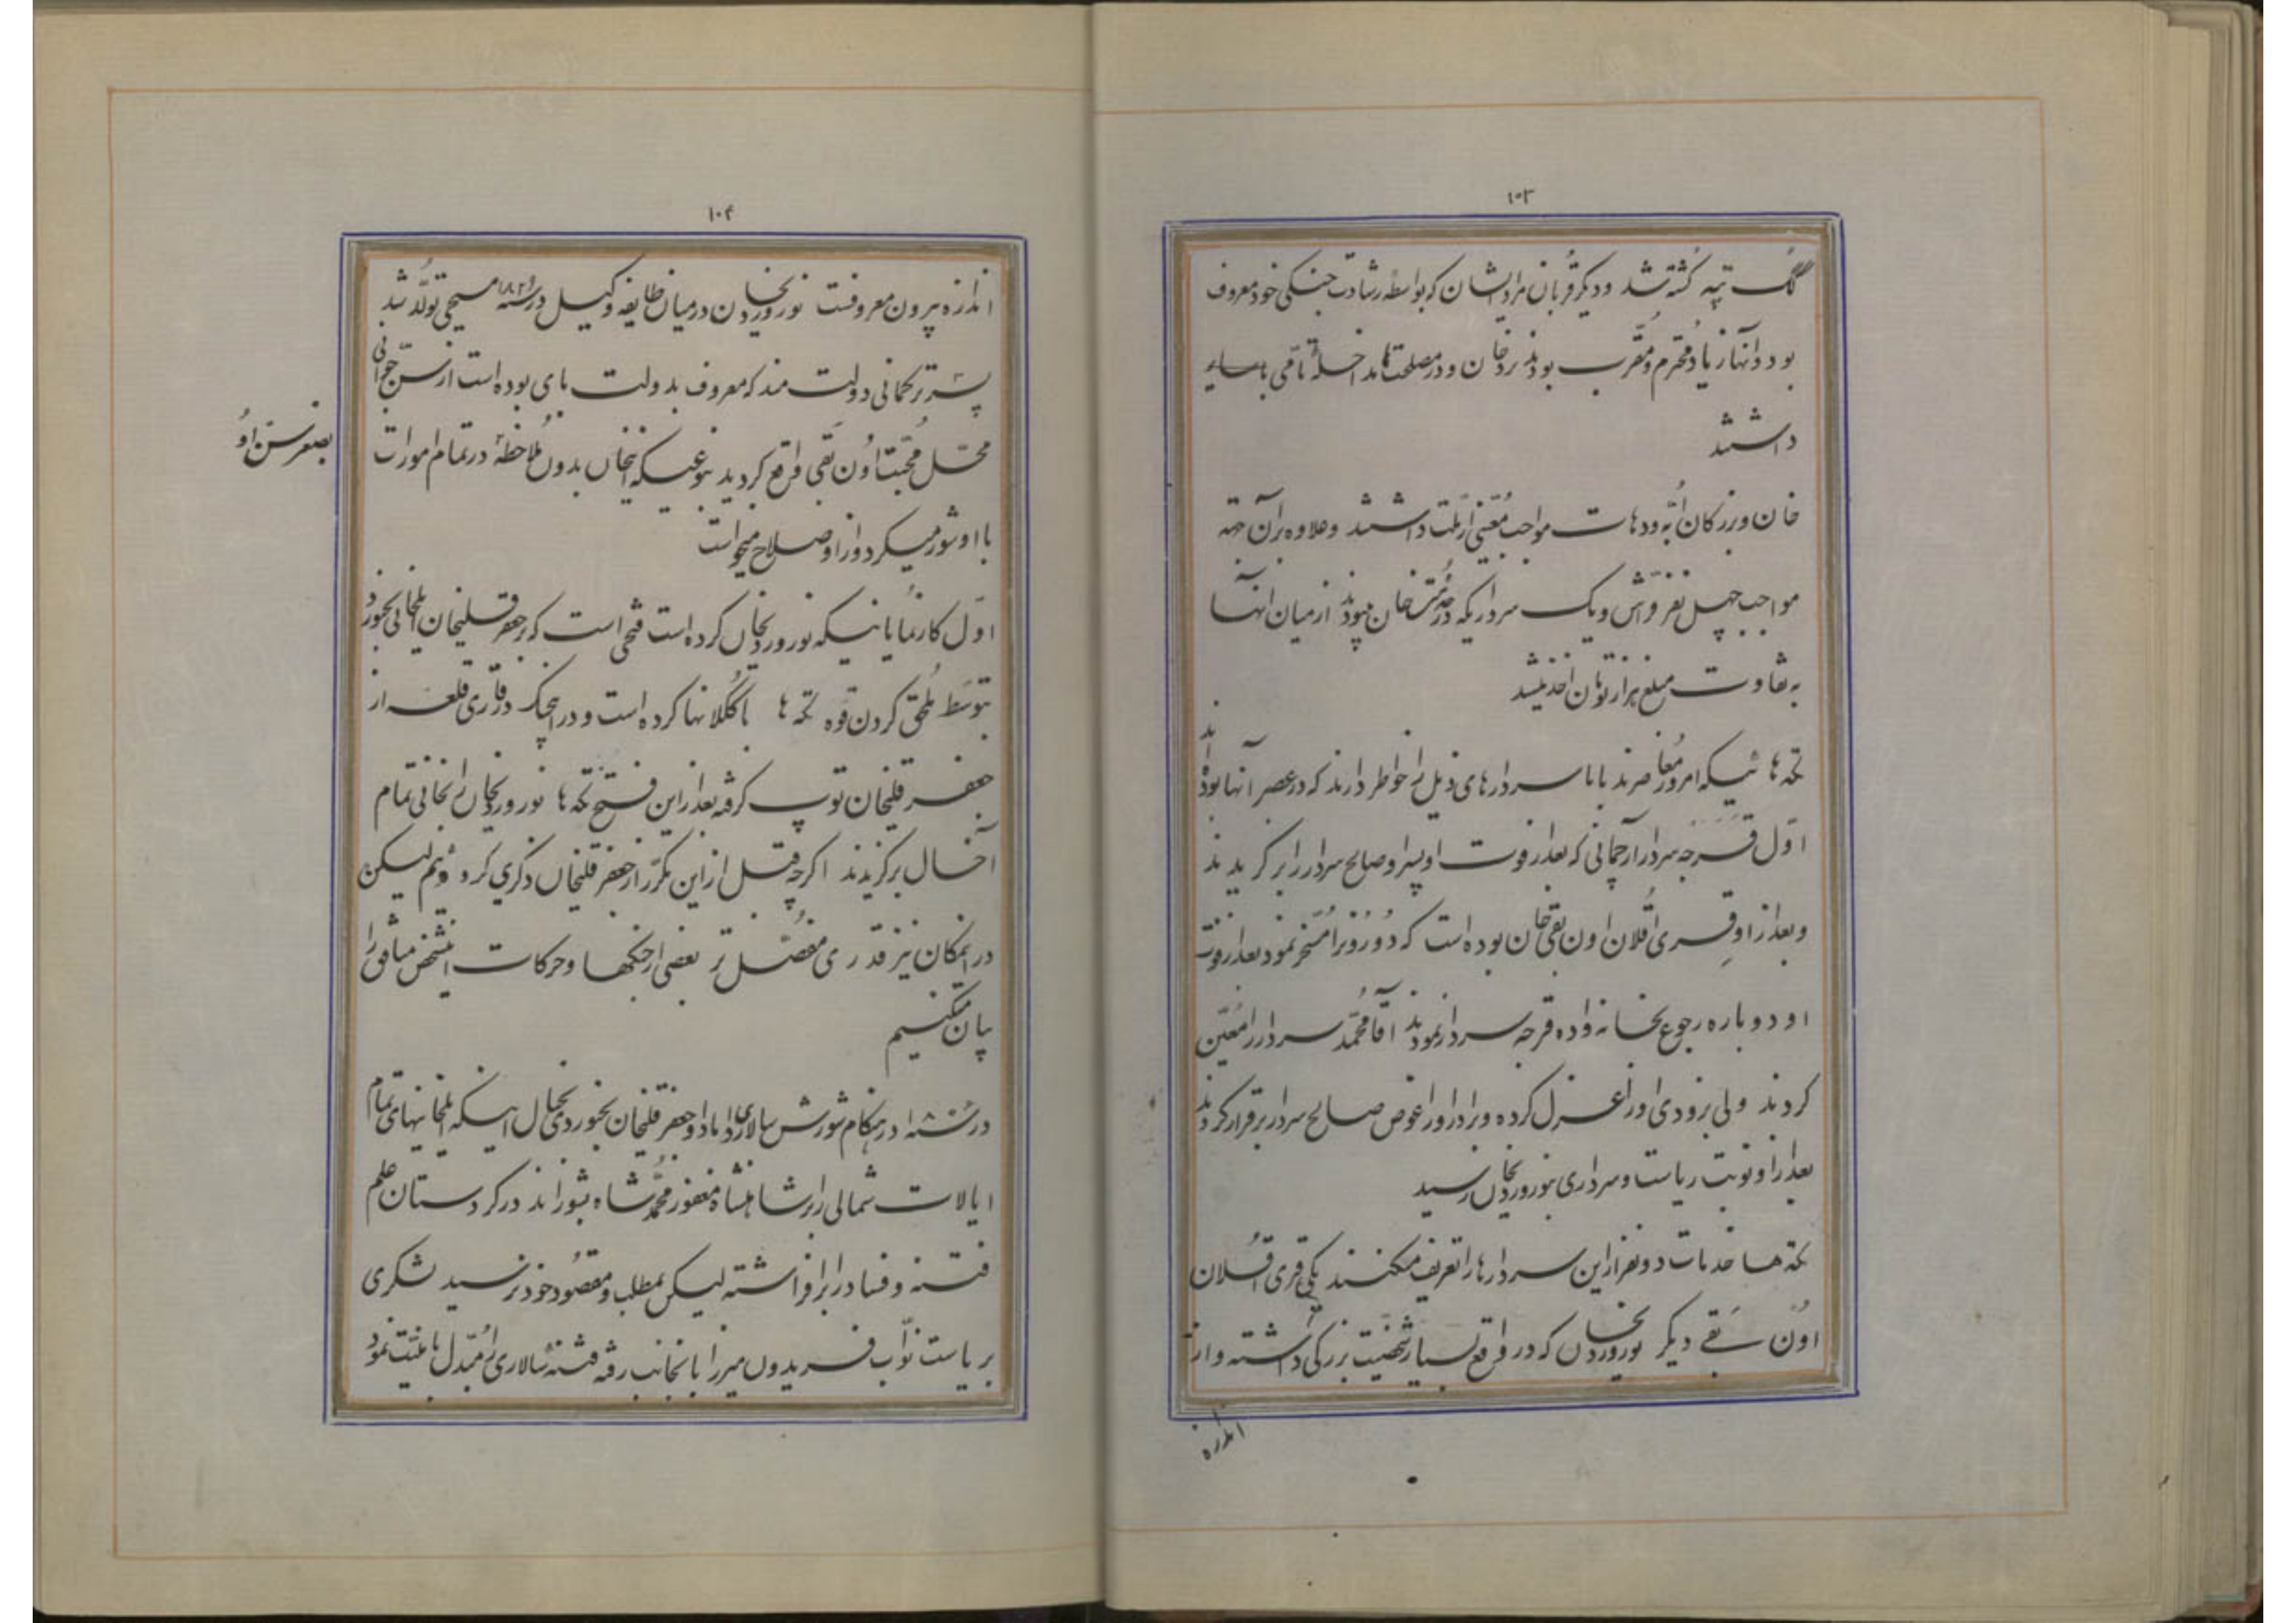 ۱۰۳
گک تپه کشته شد و دیگر قربان مراد ایشان که بواسطه رشادت جنگی خود معروف
بود و اینها زیاد محترم و مقرب بودند نزد خان و در مصلحتها مداخلهٔ تامی با سایر
داشتند
خان و بزرگان اُبه و دهات مواجب معینی از ملت داشتند و علاوه بر آن جهته
مواجب چهل نفر فراش و یک سرداریکه در خدمت خان میبودند از میان آنها
به تفاوت مبلغ هزار تومان اخذ میشد
تکه ها ئیکه امروز معاصرند با با سردارهای ذیل را خواطر دارند که در عصر آنها بوده اند
اوّل قَرَجه سردار آرچمانی که بعد از فوت او پسر او صالح سردار را برگزیدند
و بعد از او قِری اقلان اون بقی خان بوده است که دورونرا مسخر نمود بعد از فوت
او دوباره رجوع بخانه واده قرجه سردار نمودند آقا محمد سردار را معیّن
کردند ولی بزودی او را عزل کرده و برادر او را عوض صالح سردار برقرار کردند
بعد از او نوبت ریاست و سرداری بنوروردیخان رسید
تکه ها خدمات دو نفر از این سردارها را تعریف میکنند یکی قری اقلان
اون بقے دیگر نوروردیخان که در واقع بسیار شخصیت بزرگی داشته و از
اندازه
۱۰۴
اندازه بیرون معروفست نوروردیخان در میان طایفه وکیل در سنهٔ ۱۸۲۱ مسیحی تولّد شد
پسر ترکمانی دولت مند که معروف بدولت بای بوده است از سن جوانی
محل محبت اون بقی واقع گردید بنوعیکه اینخان بدون ملاحظهٔ در تمام امورات
بصغر سن او
با او شور میکرد و از او صلاح میخواست
اوّل کار نمایانیکه نوروردیخان کرده است فتحی است که بر جعفر قلیخان ایلخانی بجنورد
بتوسّط ملحق کردن قوه تکه ها با گُکلانها کرده است و در اینجنگ در قاری قلعه از
جعفر قلیخان توپ گرفته بعد از این فتح تکه ها نوروردیخان را بخانی تمام
آخال برگزیدند اگرچه قبل از این مکرّر از جعفر قلیخان ذکری کرده ایم لیکن
در اینمکان نیز قدری مفصّل تر بعضی از جنگها و حرکات اینشخص منافق را
بیان میکنیم
در هنگام شورش سالار داماد او جعفر قلیخان بجنوردی بخیال اینکه ایلخانیهای تمام
ایالات شمالی را بر شاهنشاه مغفور محمّد شاه بشوراند در کردستان علم
فتنه و فساد را برافراشته لیکن بمطلب و مقصود خود نرسید لشکری
بریاست نوّاب فریدون میرزا بانجانب رفته فتنه سالاری را مبدل بامنیت نمود